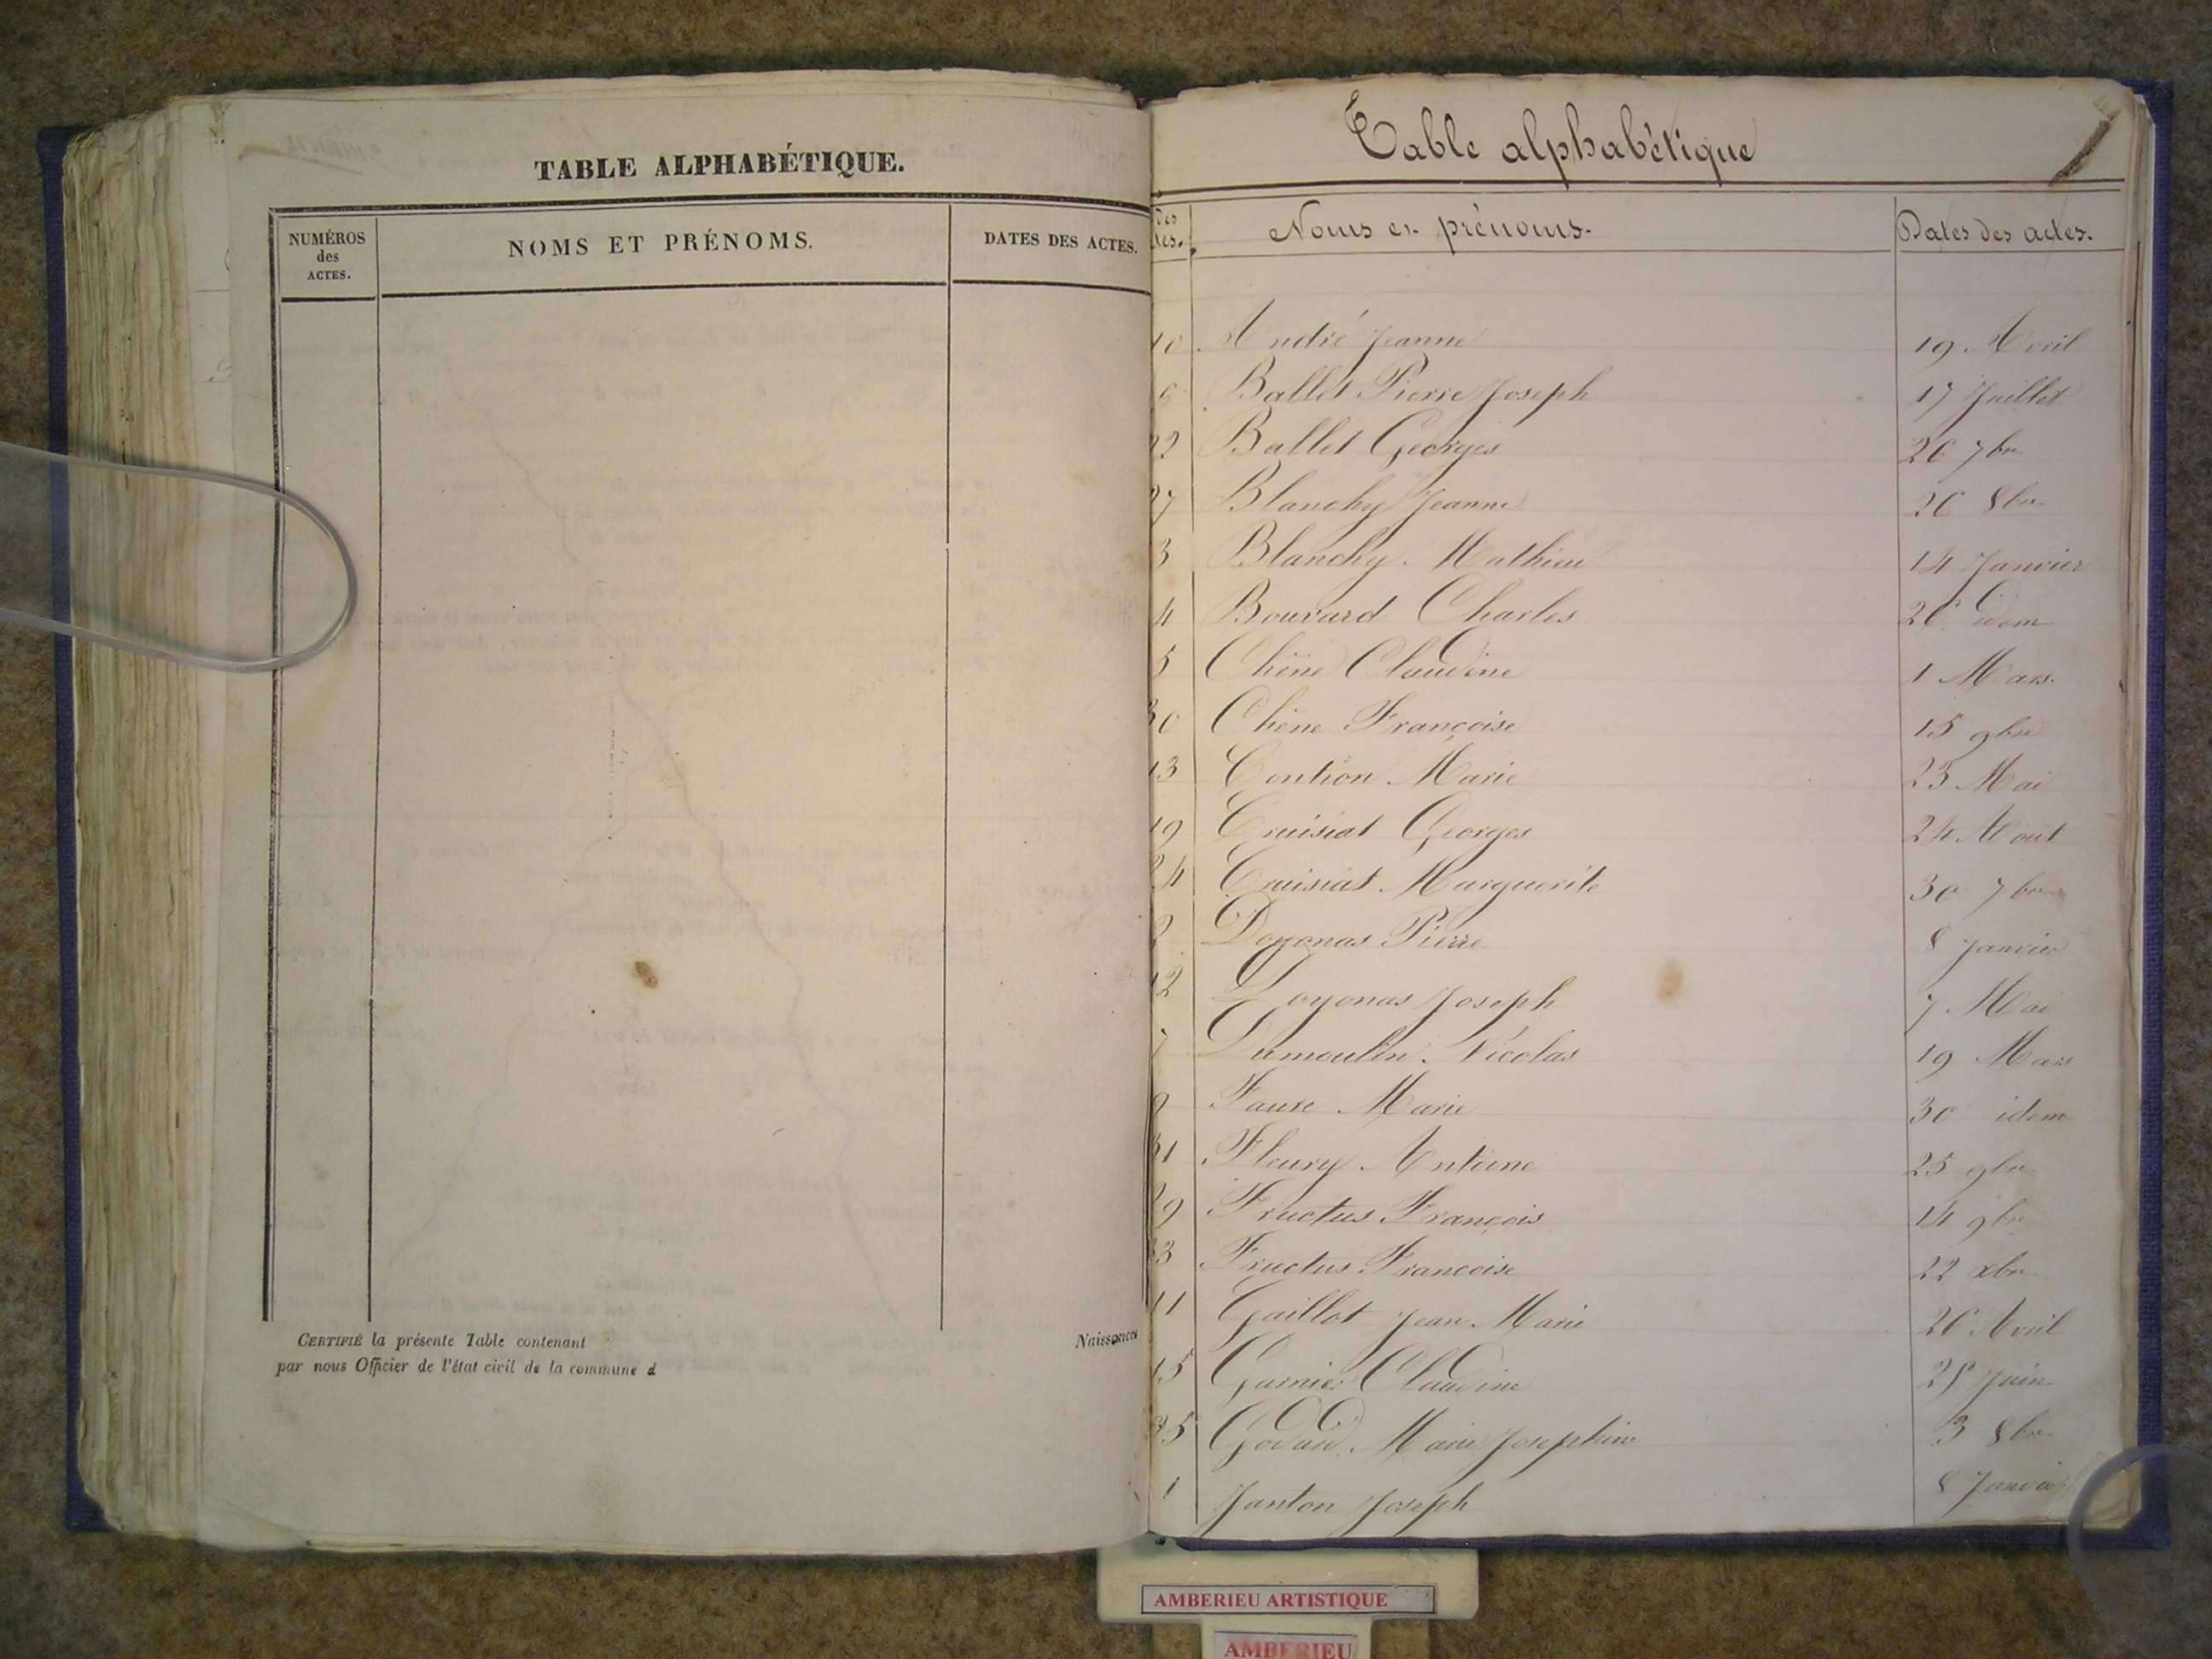 TABLE ALPHABÉTIQUE.
NUMÉROS
des
ACTES.
NOMS ET PRÉNOMS.
DATES DES ACTES.
CERTIFIÉ la présente Table contenant
Naissances
par nous Officier de l'état civil de la commune d
Table alphabétique
des
Noms et prénoms.
Dates des actes.
10 André Jeanne 19 Avril
Ballet Pierre Joseph 17 Juillet
22 Ballet Georges 26 7bre
27 Blanchy Jeanne 26 8bre
3 Blanchy Mathieu 14 Janvier
4 Bouvard Charles 26 idem
5 Chêne Claudine 1 Mars
30 Chêne Françoise 15 9bre
13 Contion Marie 23 Mai
19 Cruisiat Georges 24 Aout
24 Cruisiat Marguerite 30 7bre
2 Doyonas Pierre 8 Janvier
12 Doyonas Joseph 7 Mai
7 Dumoulin Nicolas 19 Mars
Faure Marie 30 idem
31 Fleury Antoine 25 9bre
29 Fructus François 14 9bre
33 Fructus Francoise 22 xbre
11 Gaillot Jean Marie 26 Avril
15 Garnier Claudine 28 Juin
25 Godard Marie Josephine 3 8bre
1 Janton Joseph 8 Janvier
AMBERIEU ARTISTIQUE
AMBERIEU